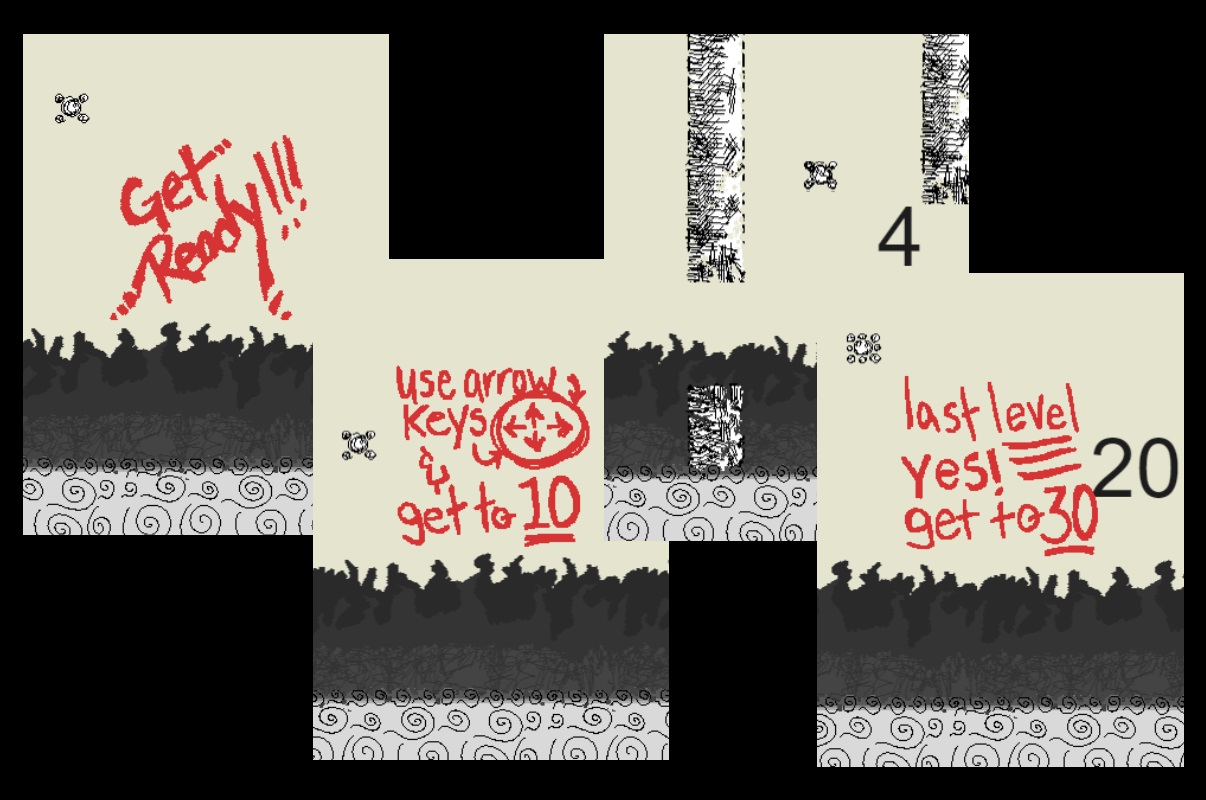 Get
Ready!!!
use arrow
keys
&
get to 10
4
last level
yes!
20
get to 30